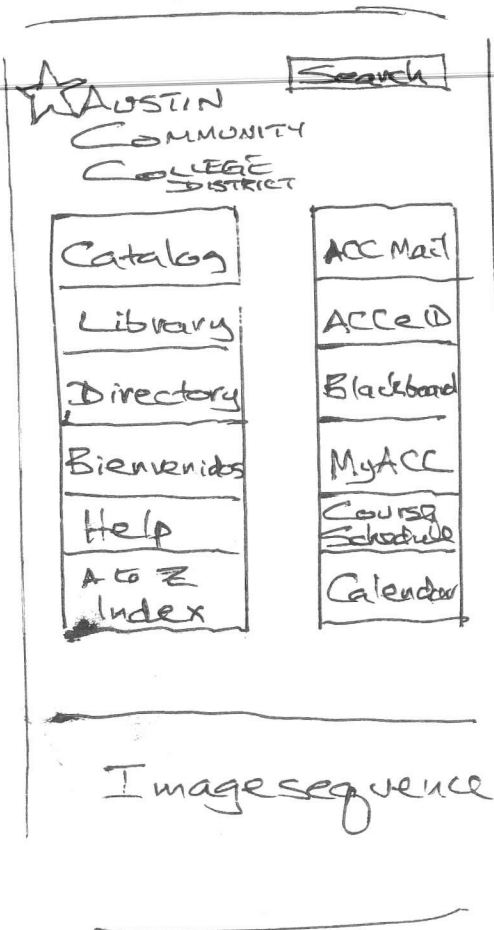 Search
AUSTIN
COMMUNITY
COLLEGE
DISTRICT
Catalog
Library
Directory
Bienvenidos
Help
A to Z
Index
ACC Mail
ACCeID
Blackboard
MyACC
Course
Schedule
Calendar
Image sequence